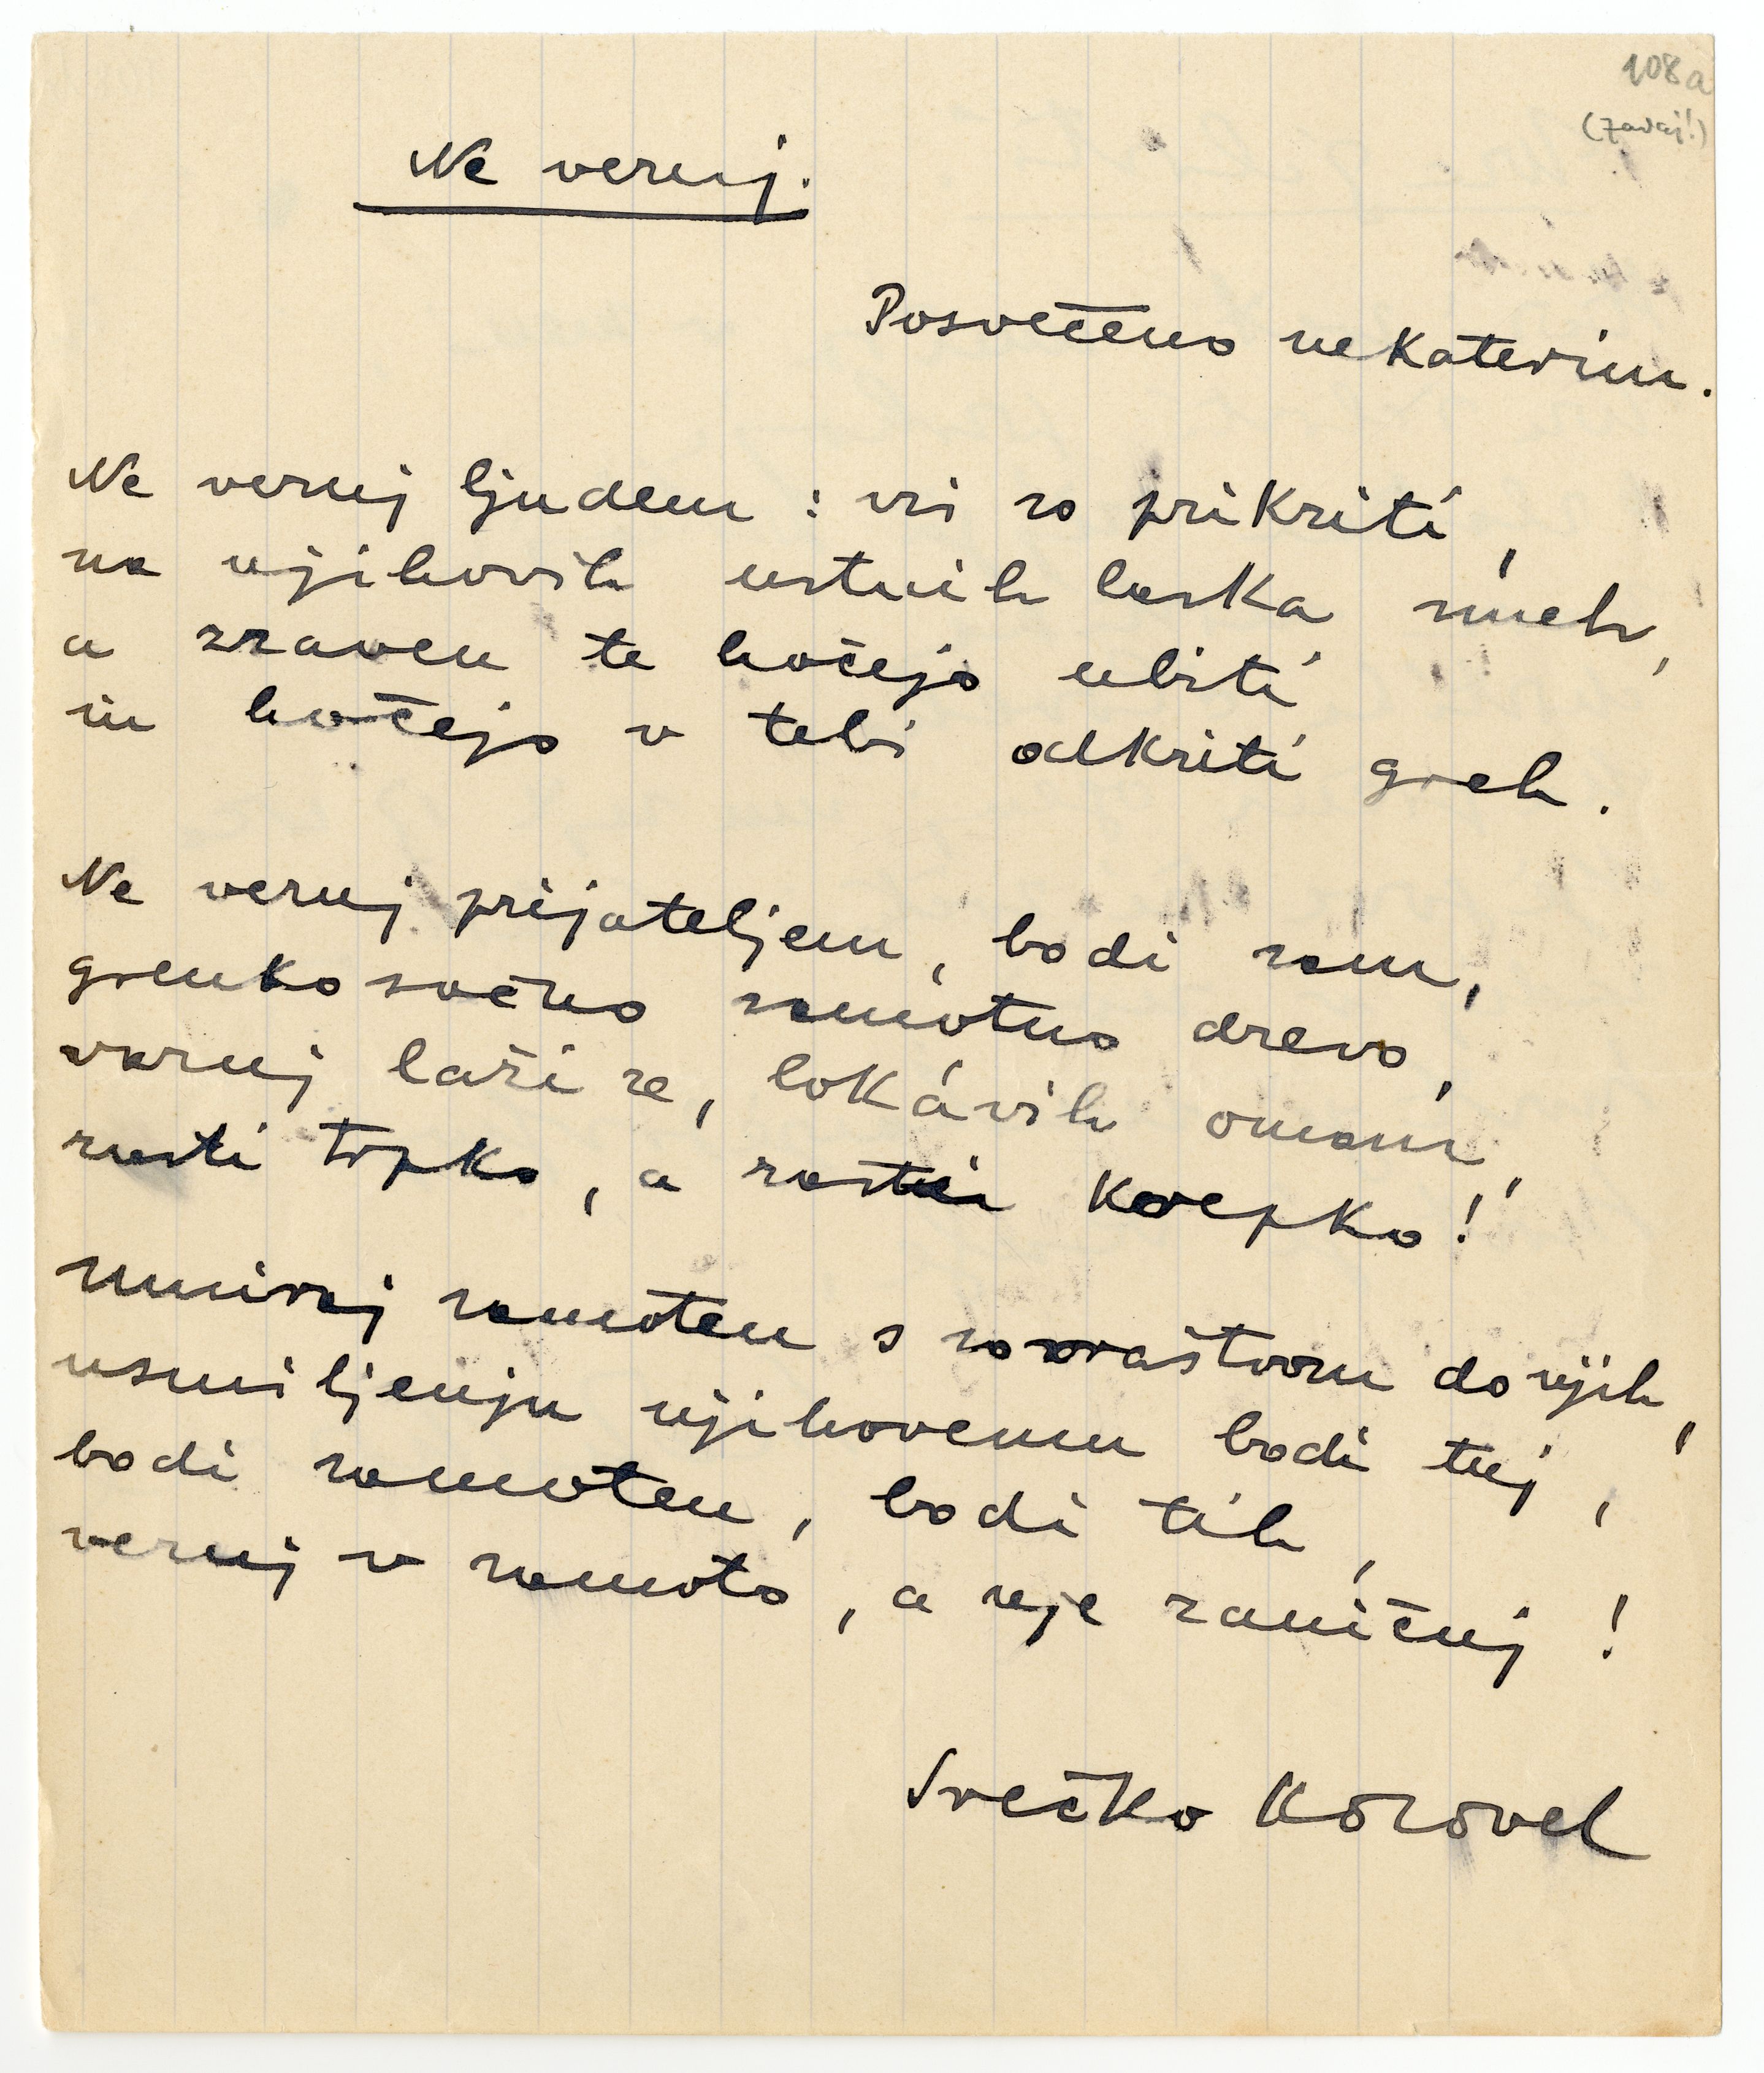 108a
(zadaj!)
Ne veruj.
Posvečeno nekaterim.
Ne veruj ljudem: vsi so prikriti,
na njihovih ustnih laska smeh,
a zraven te hočejo ubiti
in hočejo v tebi odkriti greh.
Ne veruj prijateljem, bodi sam,
grenkosočno samotno drevo,
varuj laži se, lokávih omam,
rasti trpko, a rasti krepko!
Umiraj samoten s sovraštvom do njih,
usmiljenju njihovemu bodi tuj,
bodi samoten, bodi tih,
veruj v samoto, a nje zaničuj!
Srečko Kosovel